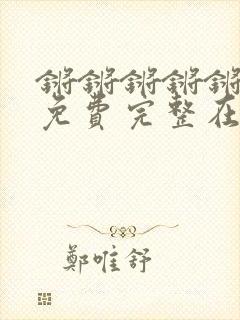 锵锵锵锵锵
免費完整在
鄭唯舒